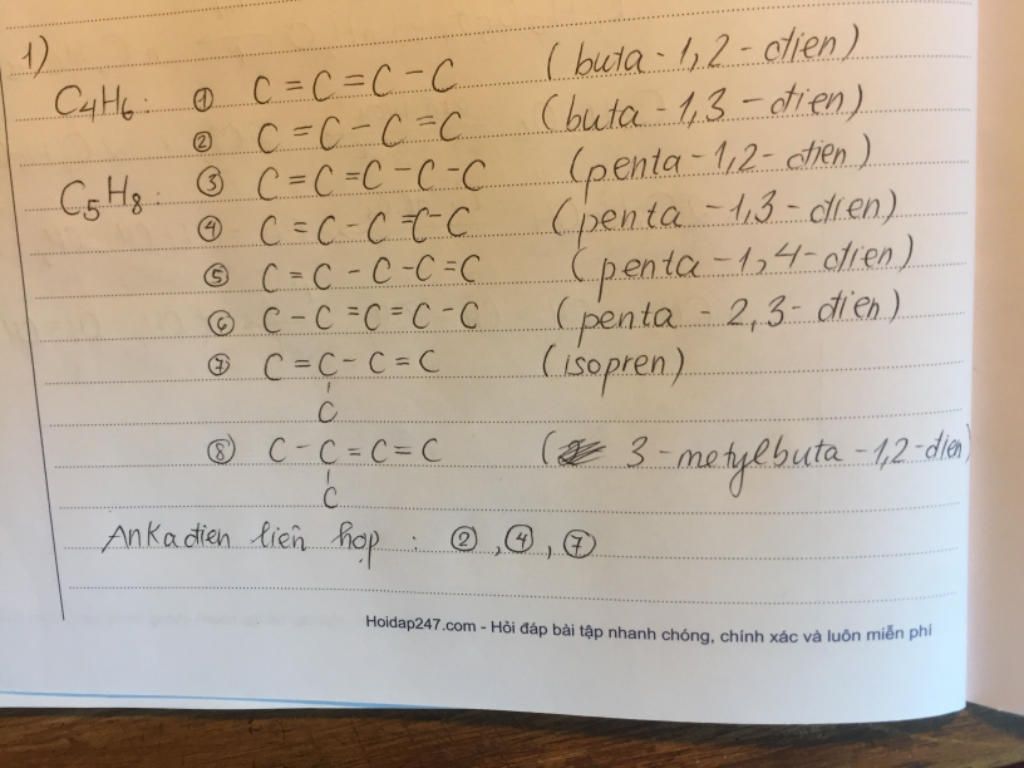 1)
C4H6: ① C = C = C - C (buta - 1,2 - đien)
② C = C - C = C (buta - 1,3 - đien)
C5H8: ③ C = C = C - C - C (penta - 1,2 - đien)
④ C = C - C = C - C (penta - 1,3 - đien)
⑤ C = C - C - C = C (penta - 1,4 - đien)
⑥ C - C = C = C - C (penta - 2,3 - đien)
⑦ C = C - C = C (isopren)
C
⑧ C - C = C = C ( 3 - metylbuta - 1,2 - dien)
C
Ankađien liên hợp : ②, ④, ⑦
Hoidap247.com - Hỏi đáp bài tập nhanh chóng, chính xác và luôn miễn phí